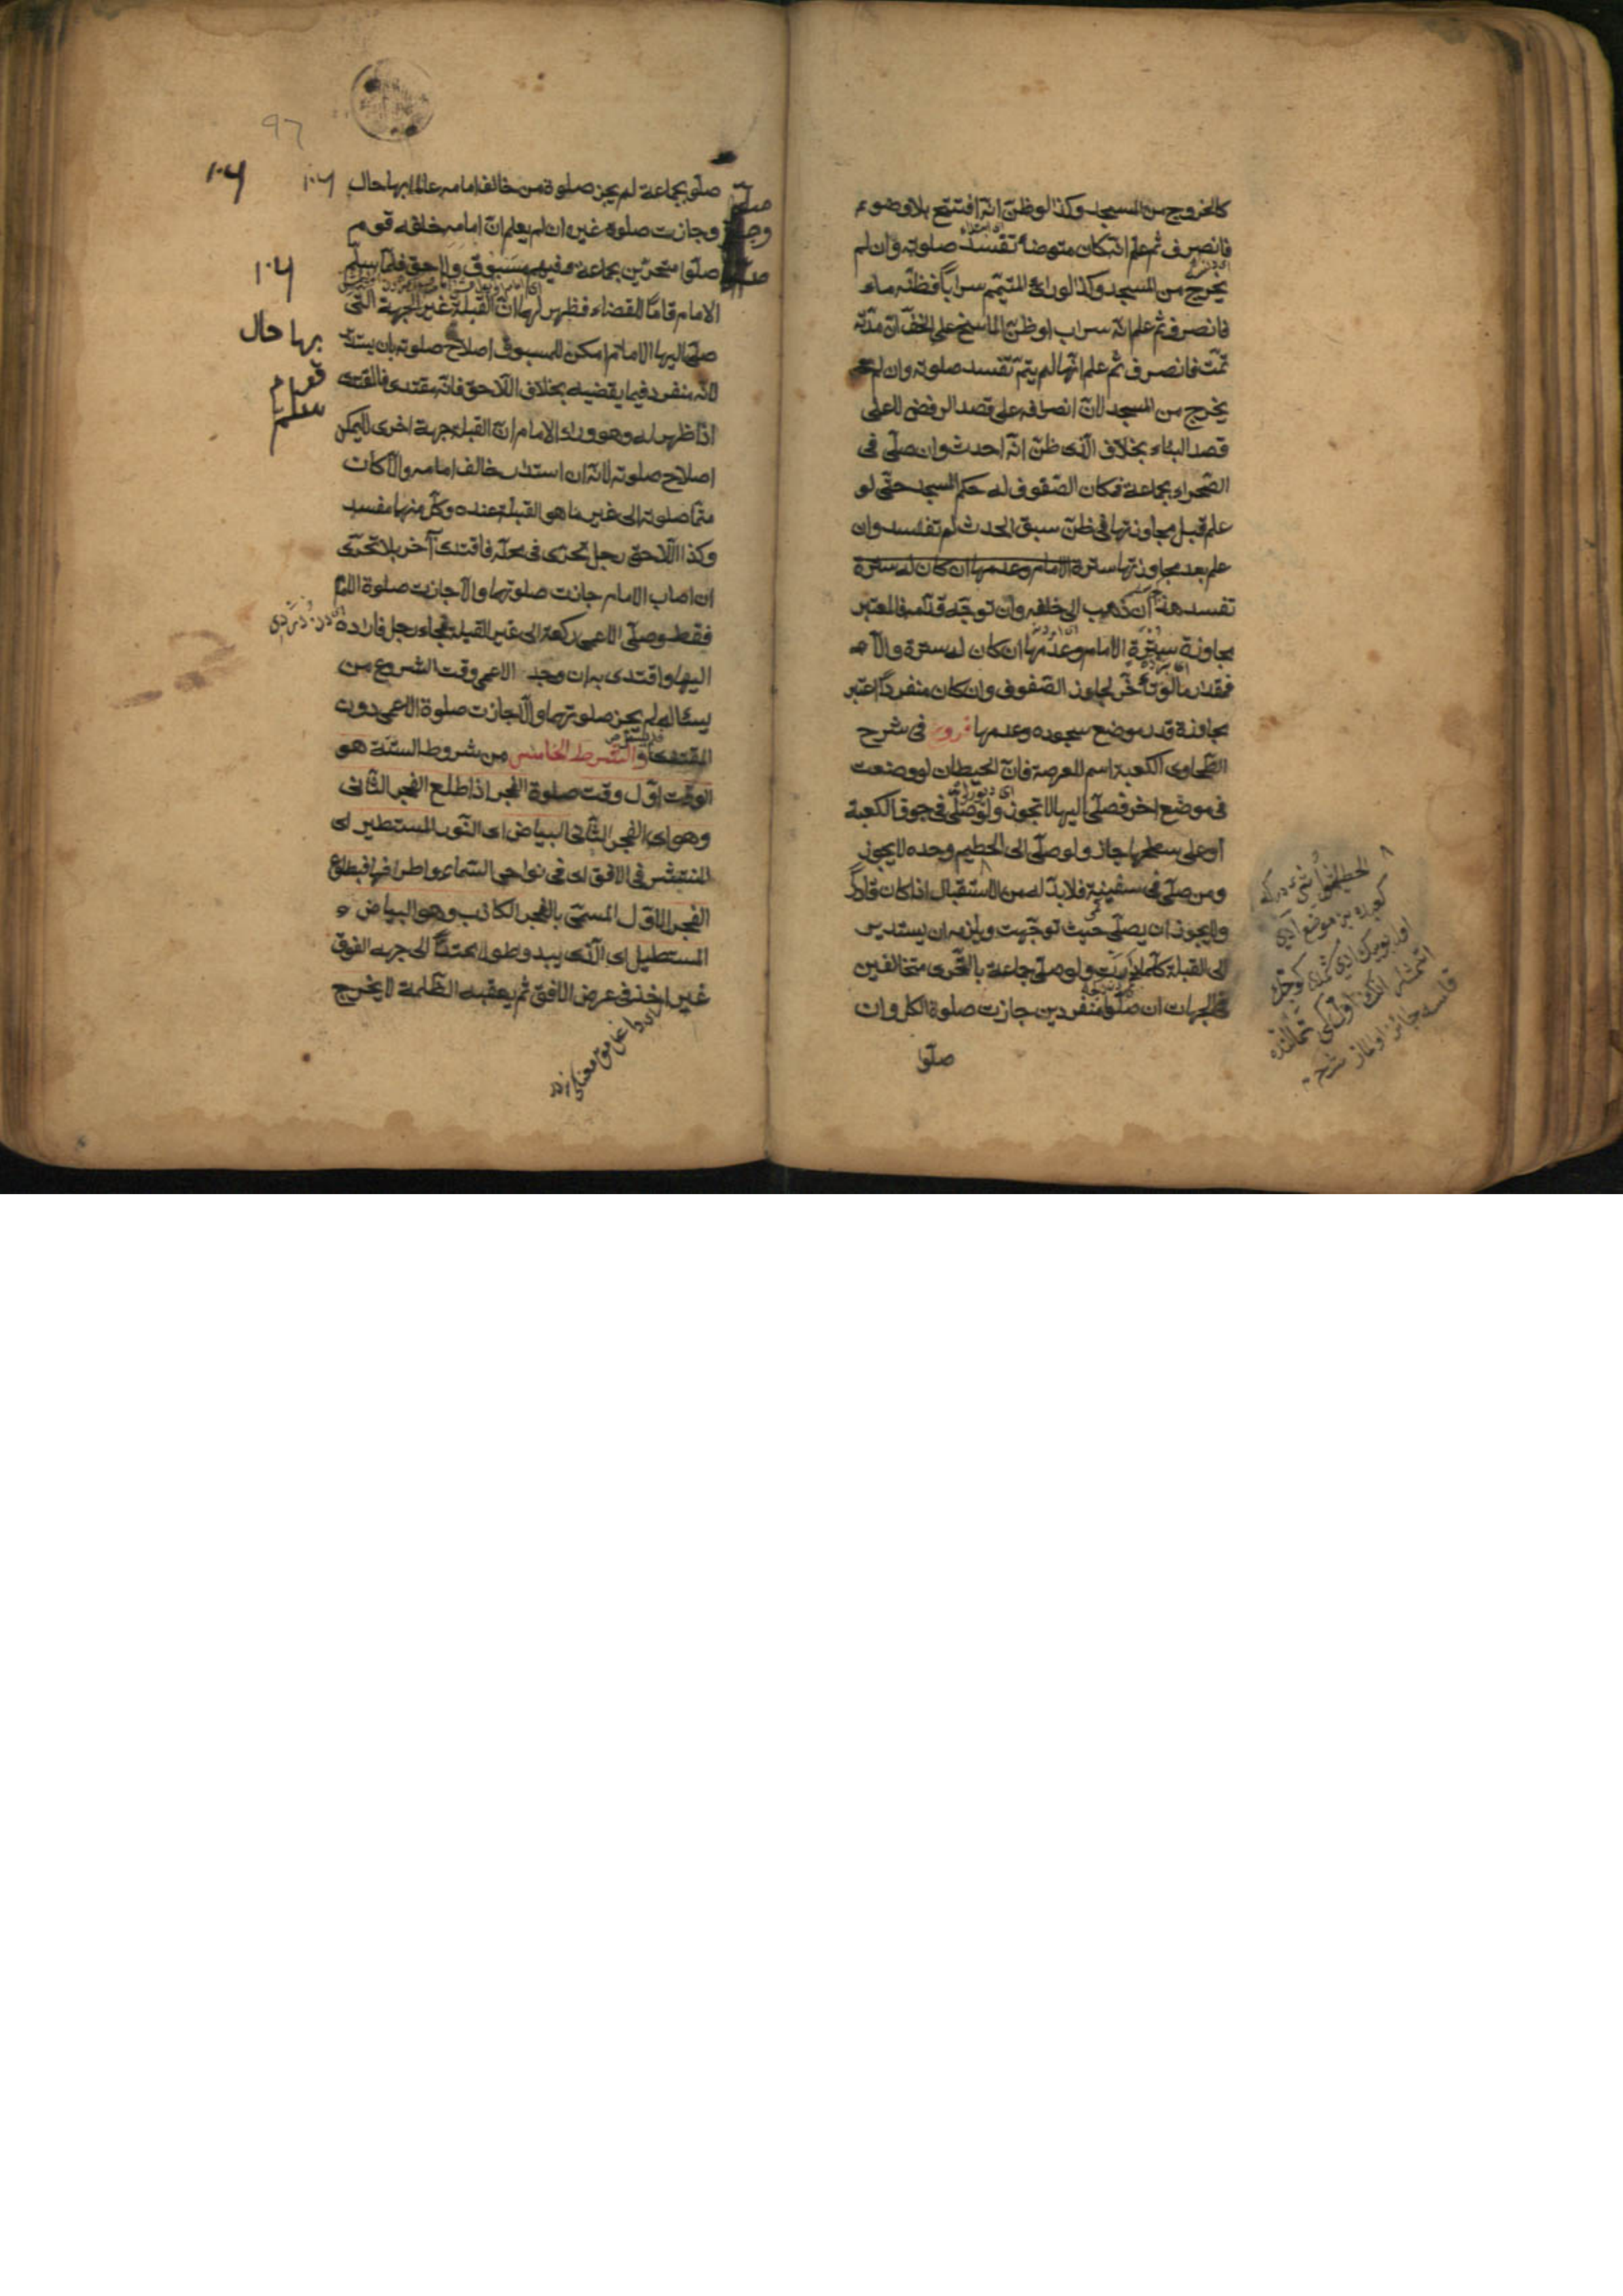 كالخروج من المسجد وكذا لو ظنّ انّه افتتح بلا وضوء
فانصرف ثم علم انه كان متوضأ تفسد صلوته وان لم
يخرج من المسجد وكذا لو رائ المتيمم سراباً فظنّه ماء
فانصرف ثم علم انّه سراب او ظنّ الماسح على الخفّ انّ مدّته
تمّت فانصرف ثم علم انّها لم يتمّ تفسد صلوته وان لم
يخرج من المسجد لانّ انصرافه على قصد الرفض لا على
قصد البناء بخلاف الّذى ظنّ انّه احدث وان صلّى فى
الصّحراء بجماعة فمكان الصّفوف له حكم المسجد حتّى لو
علم قبل مجاوزتها فى ظنّ سبق الحدث لم تفسد وان
علم بعد مجاوزتها سترة الامام وعدمها ان كان له سترة
تفسد هذا ان ذهب الى خلفه وان توجّه قدّامه فالمعتبر
مجاوزة سترة الامام وعدمها ان كان له سترة والّا
فمقدار ما لو تأخّر لجاوز الصّفوف وان كان منفرداً اعتبر
مجاوزة قدر موضع سجوده وعدمها فروع فى شرح
الطّحاوى الكعبة اسم للعرصة فانّ الحيطان لو وضعت
فى موضع اخر فصلّى اليها لا تجوز ولو صلّى فى جوف الكعبة
او على سطحها جاز ولو صلّى الى الحطيم وحده لا يجوز
ومن صلّى فى سفينة فلا بدّ له من الاستقبال اذا كان قادراً
ولا يجوز ان يصلّى حيث توجّهت ويلزمه ان يستدير
الى القبلة كلّما دارت ولو صلّى جماعة بالتّحرى متخالفين
فى الجهات ان صلّوا منفردين جازت صلوة الكل وان
صلّوا
صلّو بجماعة لم يجز صلوة من خالف امامه عالما بها حال
وجازت صلوة غيره ان لم يعلم انّ امامه خلفه قوم
صلّوا متحرّين بجماعة وفيهم مسبوق ولاحق فلمّا سلّم
الامام قاما للقضاء فظهر لهما انّ القبلة غير الجهة الّتى
صلّى اليها الامام امكن للمسبوق اصلاح صلوته بان يستدير
لانّه منفرد فيما يقضيه بخلاف اللّاحق فانّه مقتدى فالمقتدى
اذا ظهر له وهو وراء الامام انّ القبلة جهة اخرى لا يمكن
اصلاح صلوته لانّه ان استدار خالف امامه والّا كان
متمّا صلوته الى غير ما هو القبلة عنده وكلّ منها مفسد
وكذا اللّاحق رجل تحرّى فى محلّه فاقتدى آخر بلا تحرّى
ان اصاب الامام جازت صلوتهما والّا جازت صلوة الامام
فقط وصلّى الاعمى ركعة الى غير القبلة فجاء رجل فاداره
اليها واقتدى به ان وجد الاعمى وقت الشروع من
يسئاله لم يجز صلوتهما والّا جازت صلوة الاعمى دون
المقتدى والشرط الخامس من شروط الستّة هو
الوقت اوّل وقت صلوة الفجر اذا طلع الفجر الثّانى
وهو اى الفجر الثّانى البياض اى النّور المستطير اى
المنتشر فى الافق اى فى نواحى السّماء واطرافها فبطلوع
الفجر الاوّل المسمّى بالفجر الكاذب وهو البياض
المستطيل اى الّذى يبدو طولا ممتدّاً الى جهه الفوق
غير اخذ فى عرض الافق ثم يعقبه الظّلمة لا يخرج
١٠٦
١٠٦
١٠٦
بها حال
قوم
سلم